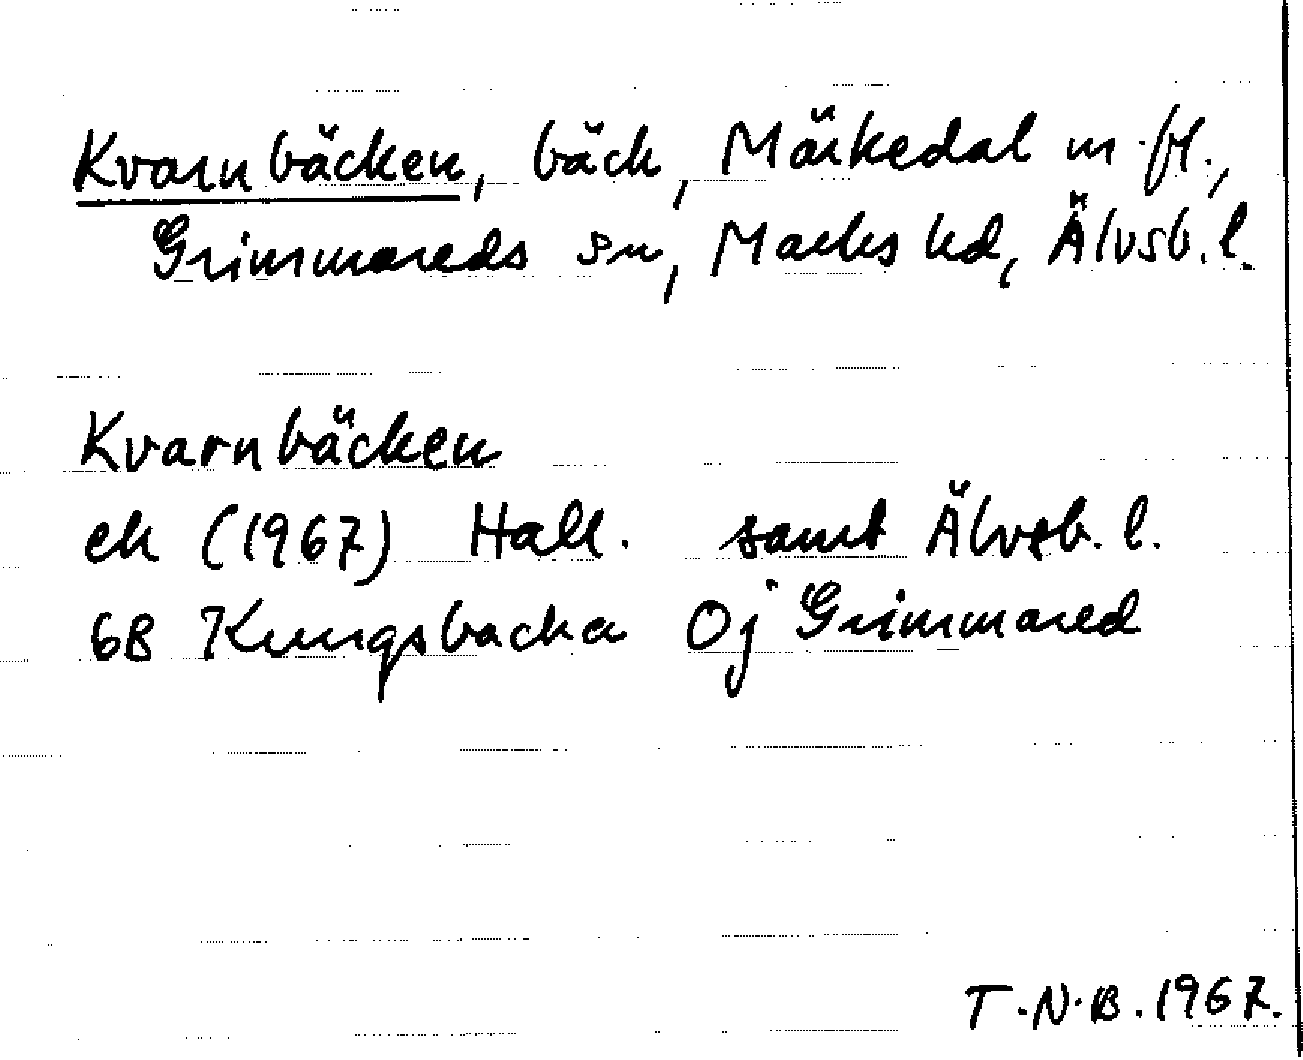 Kvarnbäcken, bäck, Märkedal m.fl.,
Grimmareds sn, Marks hd, Älvsb.l.
Kvarnbäcken
ek (1967) Hall. samt Älvsb.l.
6B Kungsbacka Oj Grimmared
T.N.B. 1967.